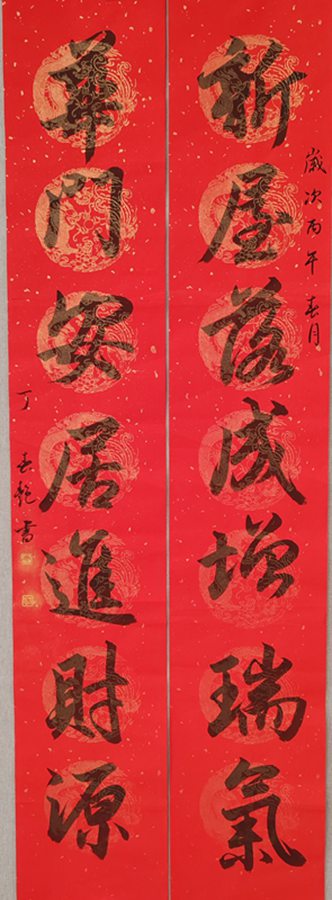 歲次丙午春月
新屋落成增瑞氣
華門安居進財源
丁春 書